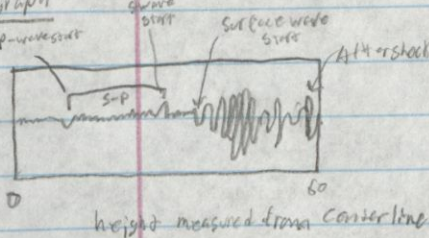 P-wave start
S wave
start
surface wave
start
Aftershock
S-P
0
60
height measured from centerline